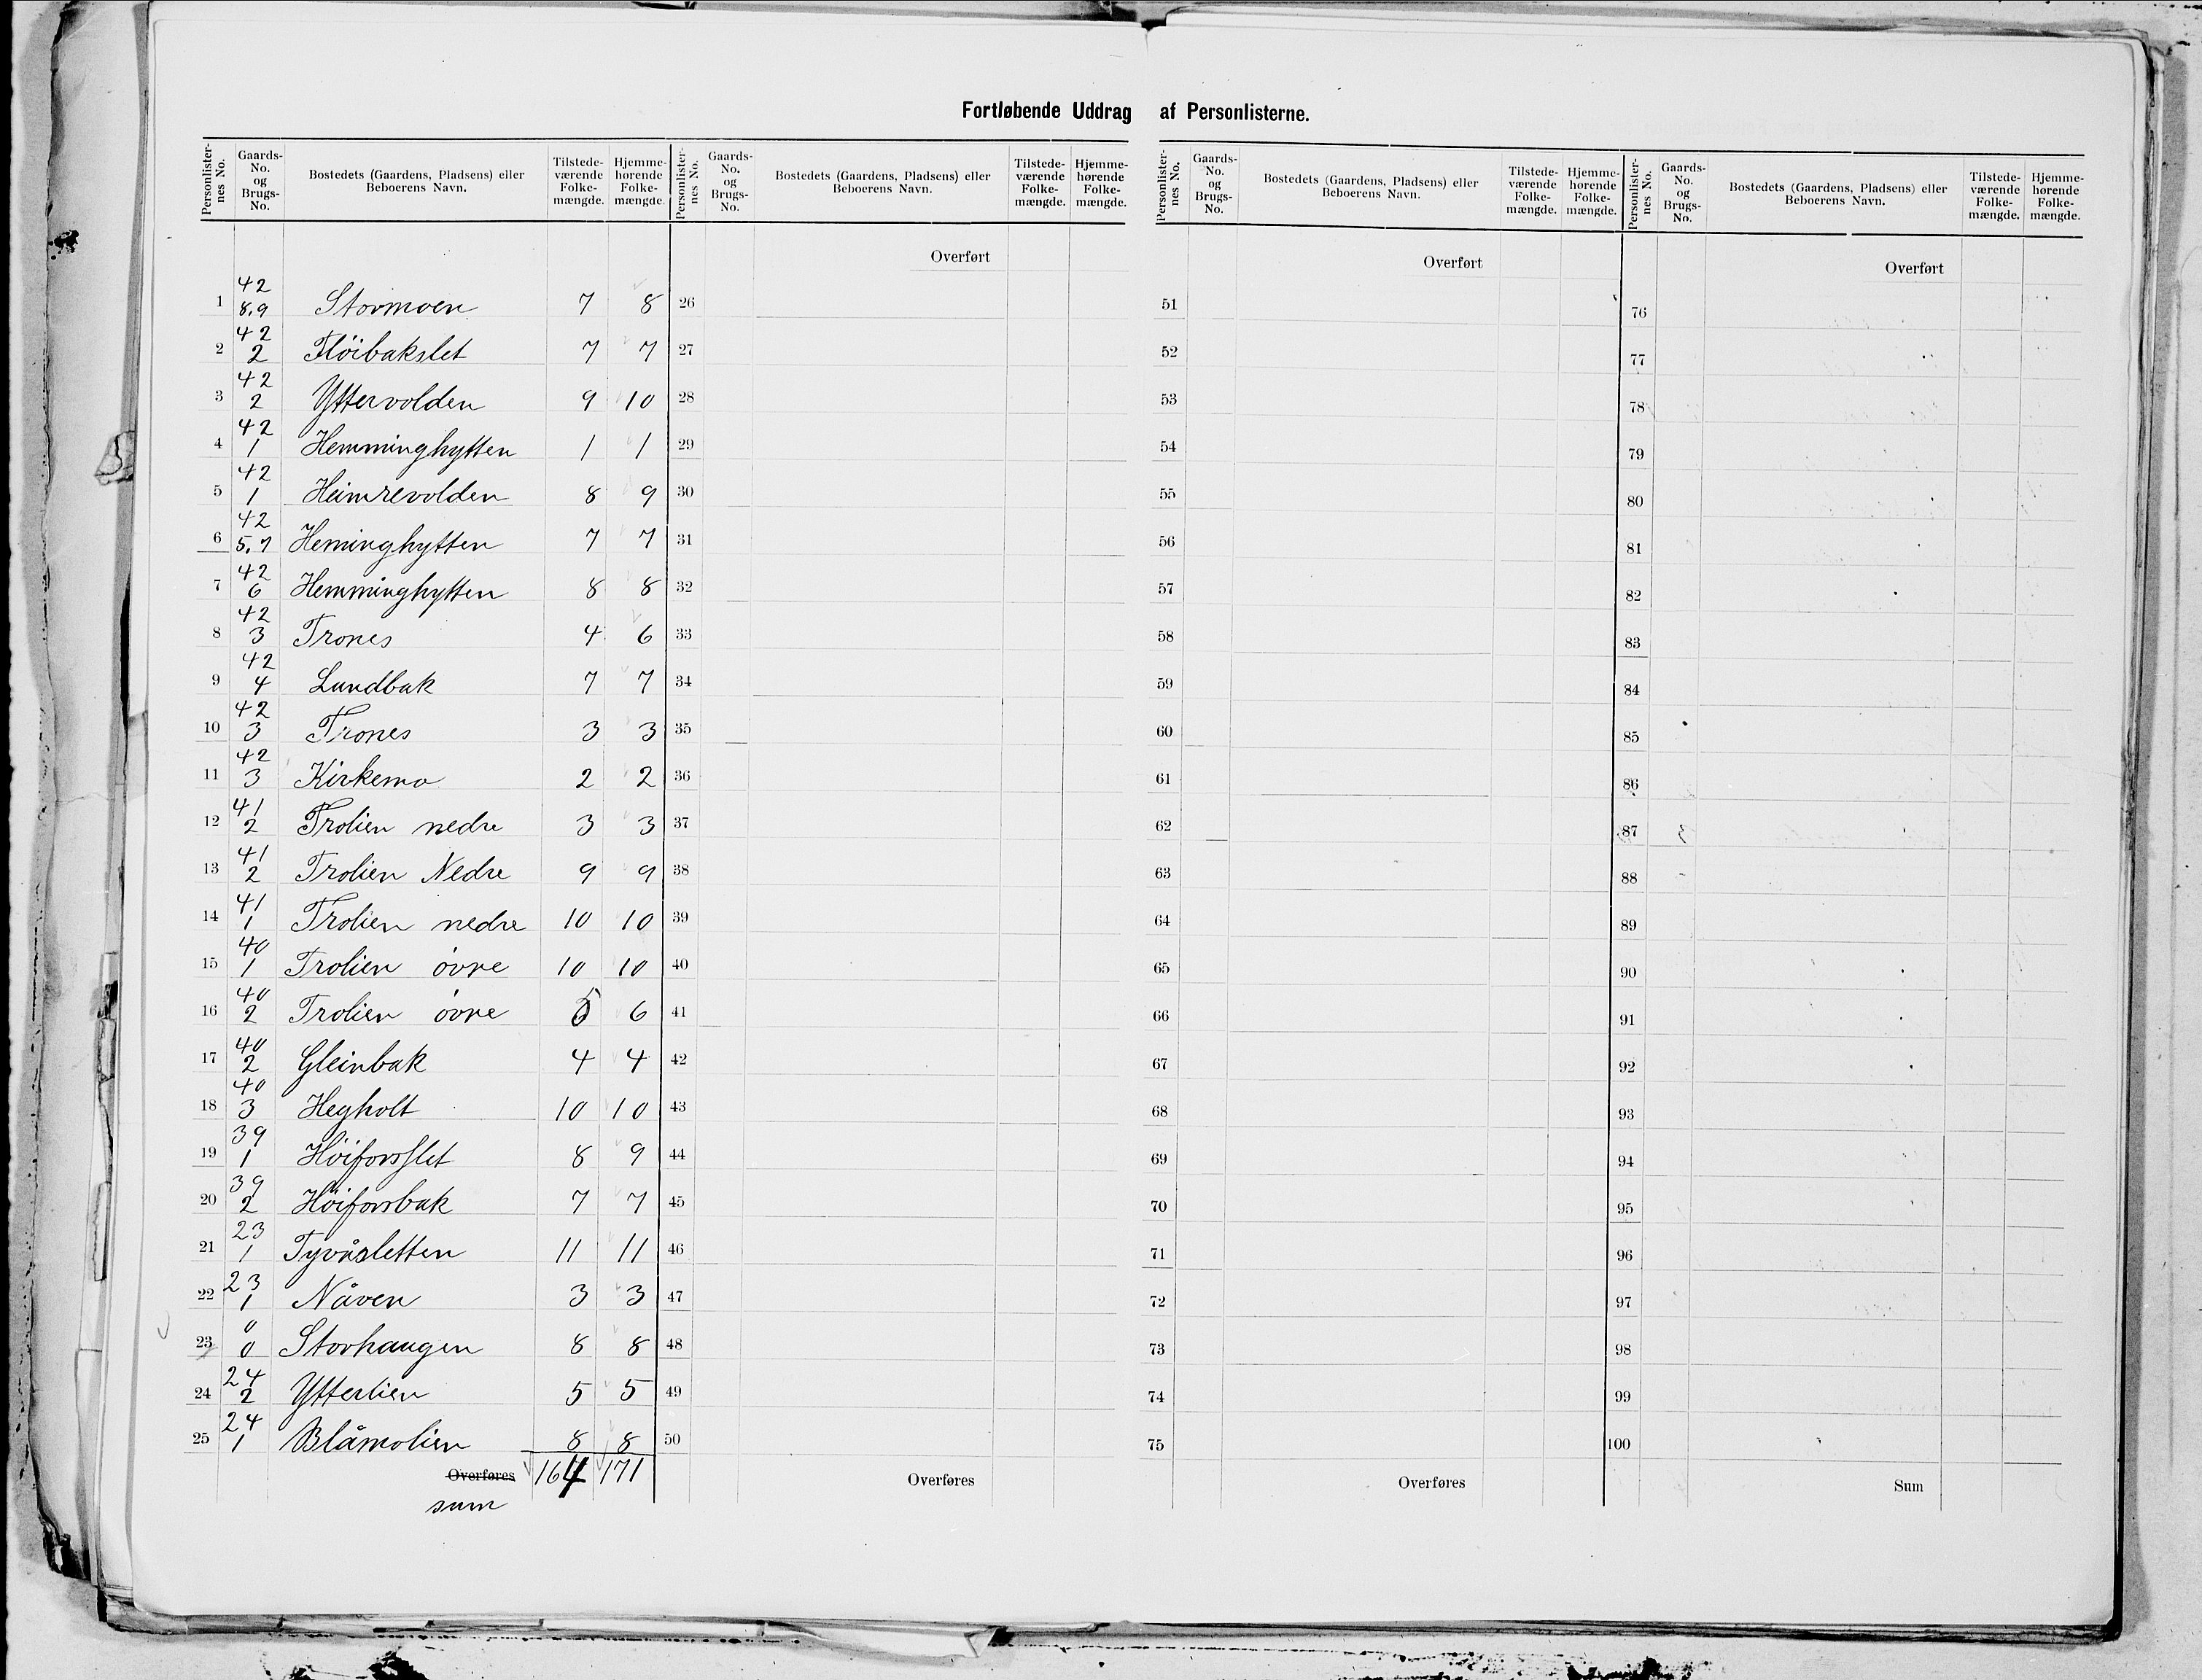 Fortløbende Uddrag af Personlisterne.
Personlisternes No. | Gaards-No. og Brugs-No. | Bostedets (Gaardens, Pladsens) eller Beboerens Navn. | Tilstedeværende Folkemængde. | Hjemmehørende Folkemængde. | Personlisternes No. | Gaards-No. og Brugs-No. | Bostedets (Gaardens, Pladsens) eller Beboerens Navn. | Tilstedeværende Folkemængde. | Hjemmehørende Folkemængde. | Personlisternes No. | Gaards-No. og Brugs-No. | Bostedets (Gaardens, Pladsens) eller Beboerens Navn. | Tilstedeværende Folkemængde. | Hjemmehørende Folkemængde. | Personlisternes No. | Gaards-No. og Brugs-No. | Bostedets (Gaardens, Pladsens) eller Beboerens Navn. | Tilstedeværende Folkemængde. | Hjemmehørende Folkemængde.
Overført Overført Overført
1 42 8,9 Stormoen 7 8 26 51 76
2 42 2 Fløibakslet 7 7 27 52 77
3 42 2 Yttervolden 9 10 28 53 78
4 42 1 Hemminghytten 1 1 29 54 79
5 42 1 Heimrevolden 8 9 30 55 80
6 42 5,7 Heminghytten 7 7 31 56 81
7 42 6 Hemminghytten 8 8 32 57 82
8 42 3 Trones 4 6 33 58 83
9 42 4 Lundbak 7 7 34 59 84
10 42 3 Trones 3 3 35 60 85
11 42 3 Kirkemo 2 2 36 61 86
12 41 2 Trolien nedre 3 3 37 62 87
13 41 2 Trolien Nedre 9 9 38 63 88
14 41 1 Trolien nedre 10 10 39 64 89
15 40 1 Trolien óvre 10 10 40 65 90
16 40 2 Trolien óvre 5 6 41 66 91
17 40 2 Gleinbak 4 4 42 67 92
18 40 3 Hegholt 10 10 43 68 93
19 39 1 Höiforsslet 8 9 44 69 94
20 39 2 Höiforsbak 7 7 45 70 95
21 23 1 Tyvåsletten 11 11 46 71 96
22 23 1 Nåven 3 3 47 72 97
23 0 0 Storhaugen 8 8 48 73 98
24 24 2 Ytterlien 5 5 49 74 99
25 24 1 Blåmolien 8 8 50 75 100
Overføres 164 171 Overføres Overføres Sum
sum